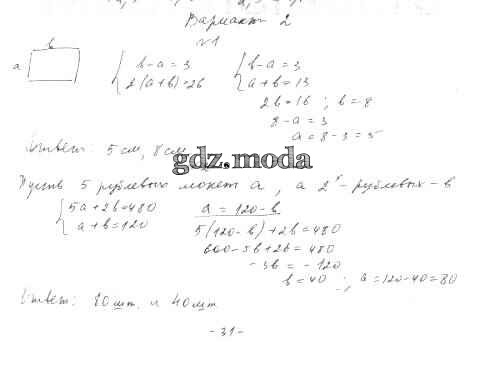 Вариант 2
№1
b
a
b-a=3
2(a+b)=26
b-a=3
a+b=13
2b=16 ; b=8
8-a=3
a=8-3=5
Ответ: 5 см, 8 см
gdz.moda
Пусть 5 рублевых монет a, а 2х-рублевых - b
5a+2b=480
a+b=120
a=120-b
5(120-b)+2b=480
600-5b+2b=480
-3b=-120
b=40 ; a=120-40=80
Ответ: 80 шт. и 40 шт.
-31-